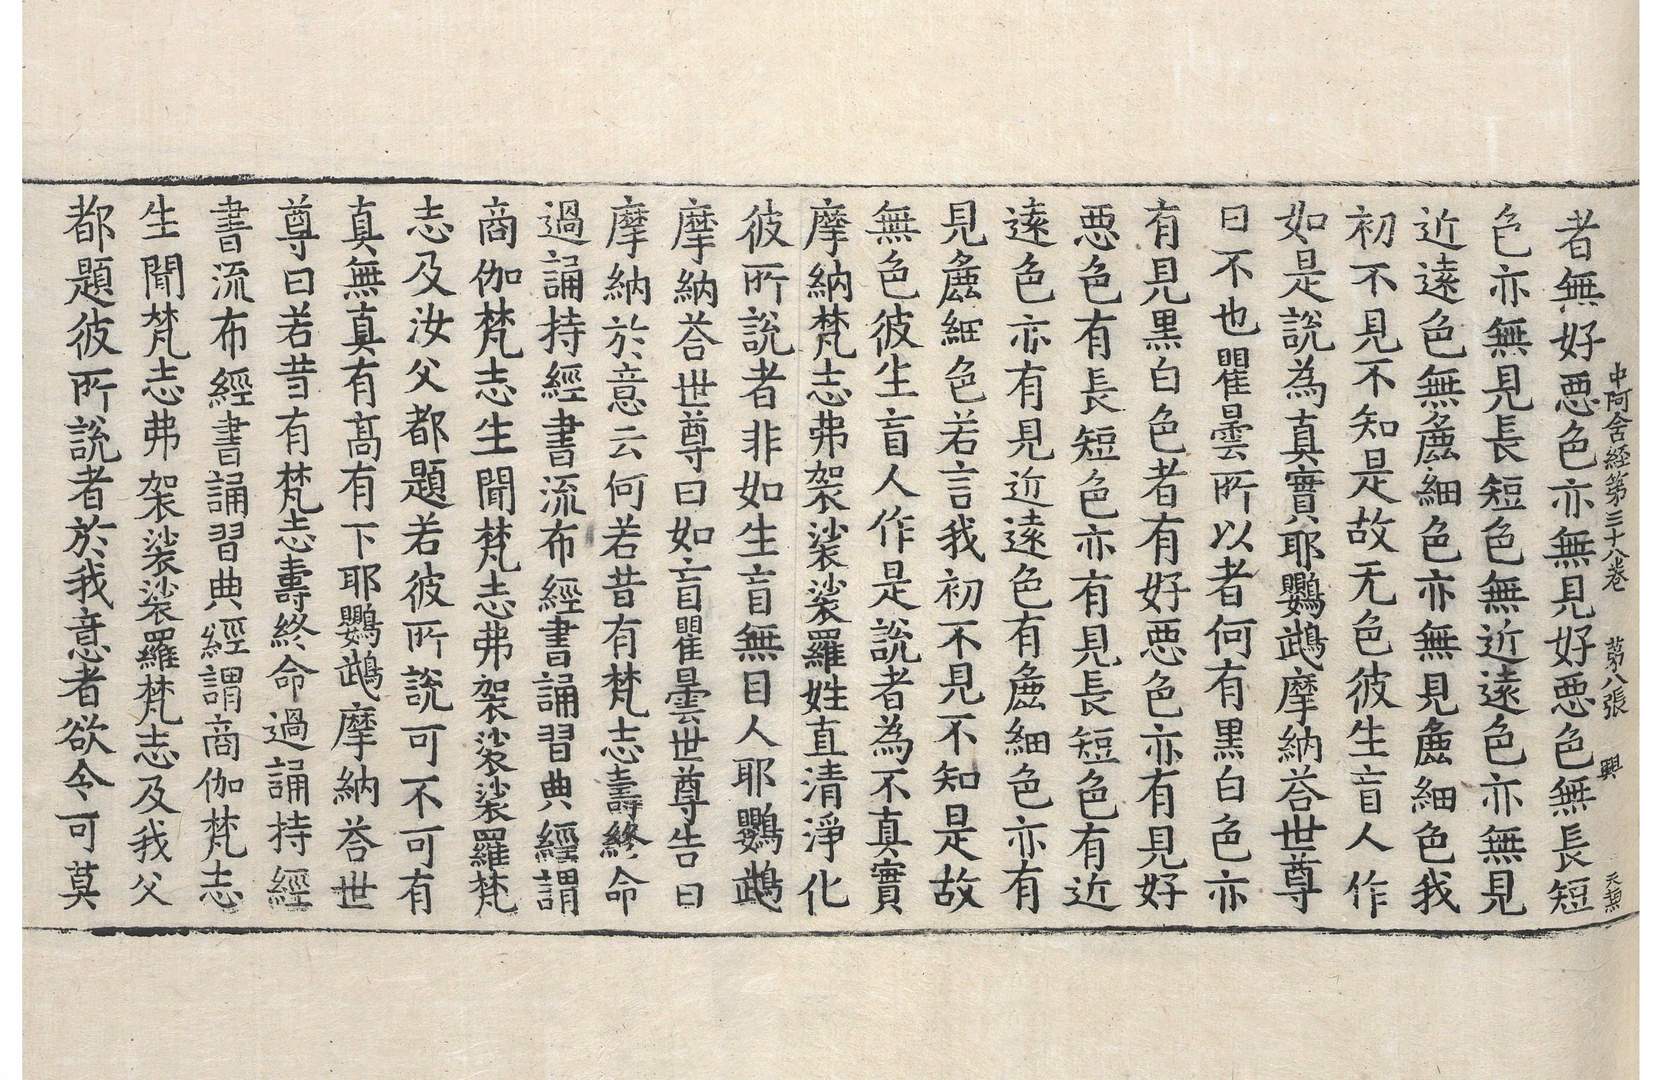 中阿含經第三十八卷 第八張 興
者無好惡色亦無見好惡色無長短
色亦無見長短色無近遠色亦無見
近遠色無麁細色亦無見麁細色我
初不見不知是故无色彼生盲人作
如是說為真實耶鸚鵡摩納荅世尊
曰不也瞿曇所以者何有黑白色亦
有見黑白色者有好惡色亦有見好
惡色有長短色亦有見長短色有近
遠色亦有見近遠色有麁細色亦有
見麁細色若言我初不見不知是故
無色彼生盲人作是說者為不真實
摩納梵志弗袈裟裟羅姓直清淨化
彼所說者非如生盲無目人耶鸚鵡
摩納荅世尊曰如盲瞿曇世尊告曰
摩納於意云何若昔有梵志壽終命
過誦持經書流布經書誦習典經謂
商伽梵志生聞梵志弗袈裟裟羅梵
志及汝父都題若彼所說可不可有
真無真有高有下耶鸚鵡摩納荅世
尊曰若昔有梵志壽終命過誦持經
書流布經書誦習典經謂商伽梵志
生聞梵志弗袈裟裟羅梵志及我父
都題彼所說者於我意者欲令可莫